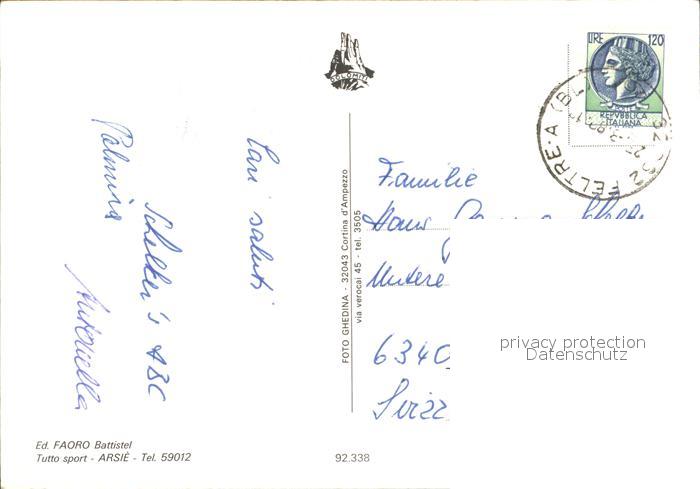 DOLOMITI
LIRE 120
REPVBBLICA
ITALIANA
FELTRE A (BL)
Cari saluti
Schelker's ABC
Palmira
Antonella
FOTO GHEDINA - 32043 Cortina d'Ampezzo
via verocai 45 - tel. 3505
Familie
Hans
Untere
6340
Svizz
privacy protection
Datenschutz
Ed. FAORO Battistel
Tutto sport - ARSIÈ - Tel. 59012
92.338